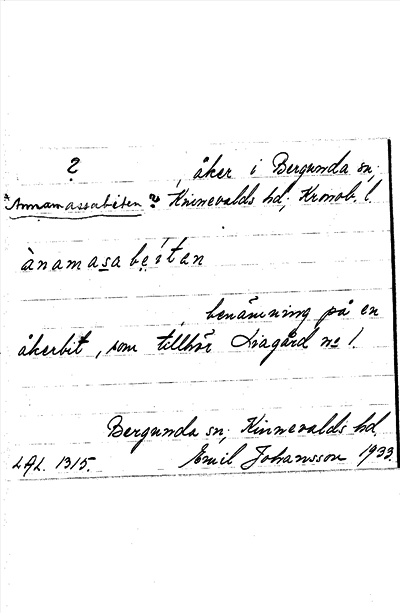 ?
, åker i Bergunda sn,
Annamassabiten ? Kinnevalds hd, Kronob. l
ànamasabe̩ítan
benämning på en
åkerbit, som tillhör Liagård no 1.
Bergunda sn, Kinnevalds hd.
LAL. 1315. Emil Johansson 1933.